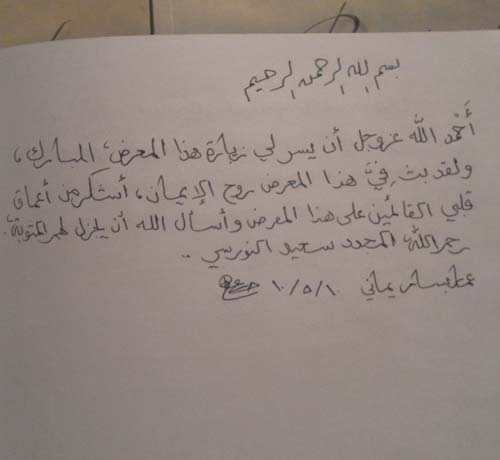 بسم الله الرحمن الرحيم
أَحْمد اللهَ عز وجل أن يسر لي زيارة هذا المعرض المبارك،
ولقد بث فيَّ هذا المعرض روح الإيمان، أشكر من أعماق
قلبي القائمين على هذا المعرض وأسأل الله أن يجزل لهم المثوبة.
رحم اللهُ المجدد سعيد النورسي ..
يماني ١٠/٥/١٠